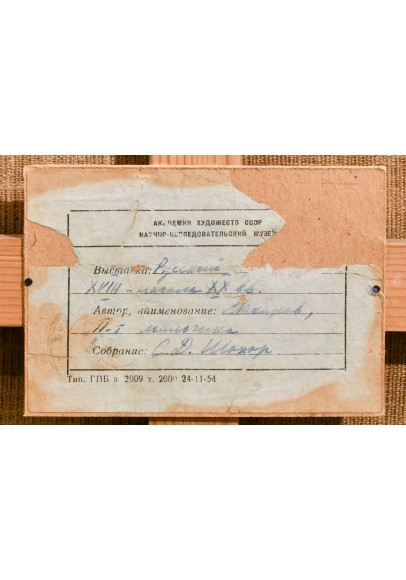 АКАДЕМИЯ ХУДОЖЕСТВ СССР
НАУЧНО-ИССЛЕДОВАТЕЛЬСКИЙ МУЗЕЙ
Выставка: Русский
XVIII - начала XX вв.
Автор, наименование: Макаров,
П-т мальчика
Собрание: С. Д. Шохор
Тип. ГПБ з. 2909 т. 2000 24-11-54